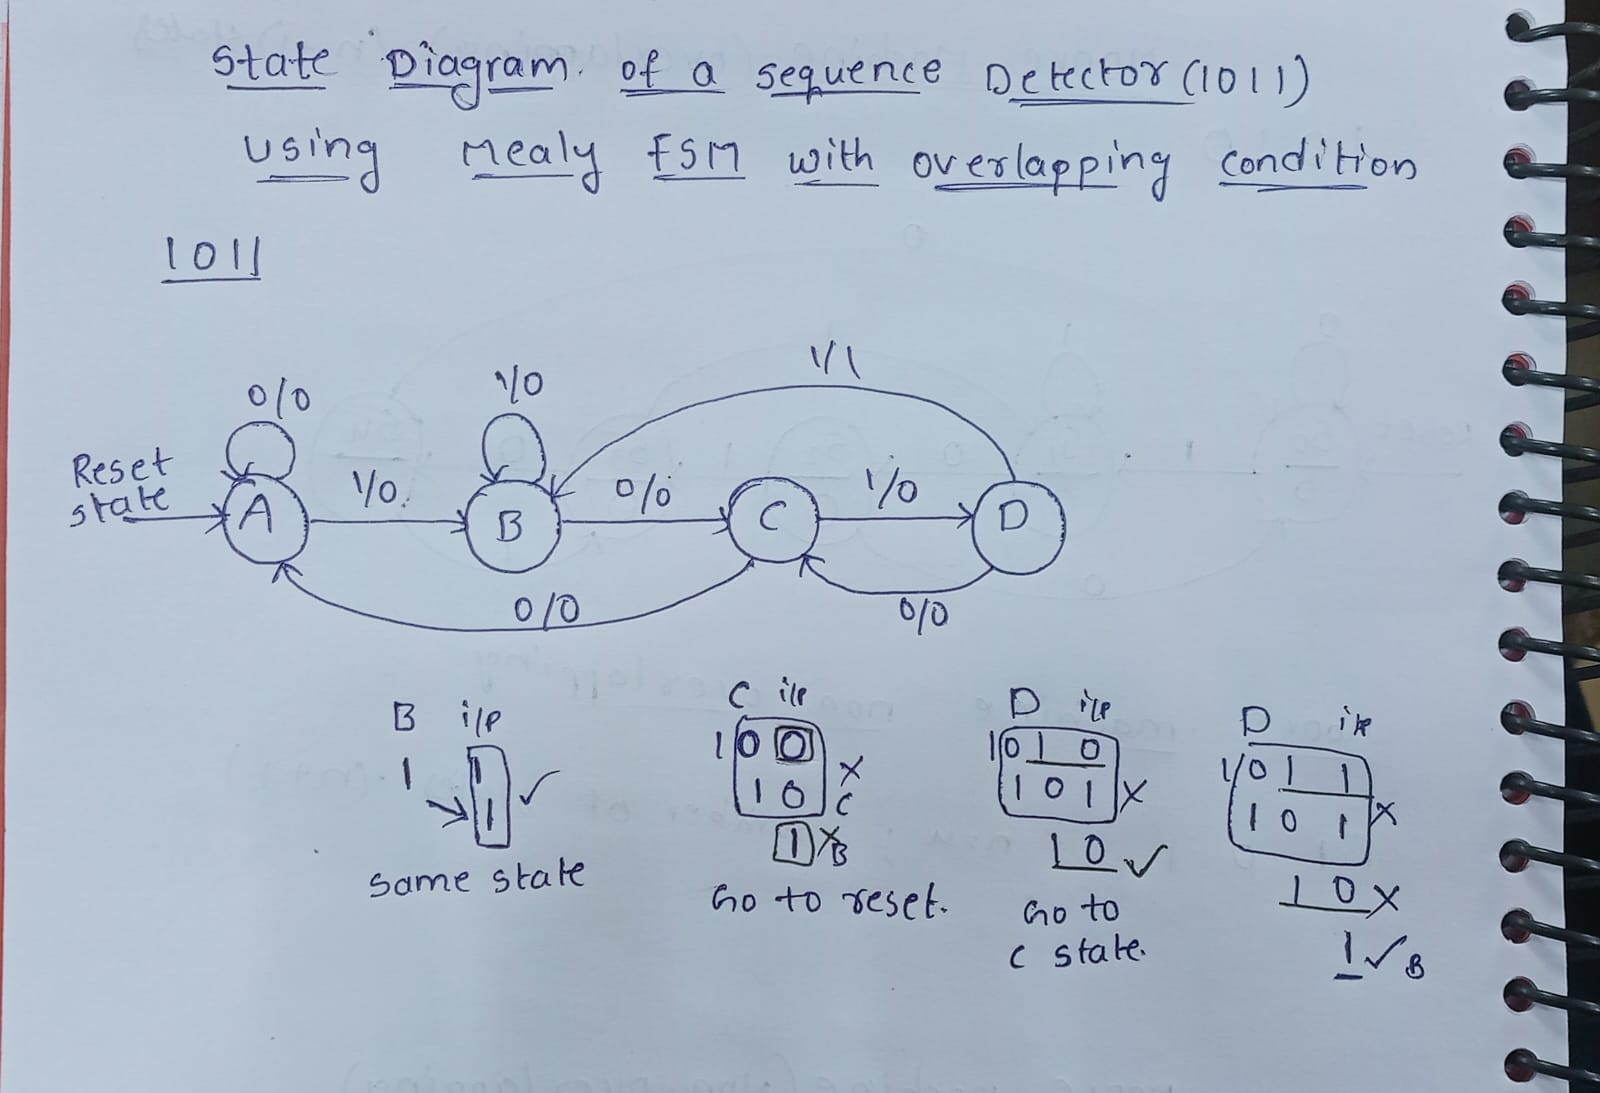 State Diagram of a sequence Detector (1011)
Using Mealy FSM with overlapping condition
1011
1/1
0/0
1/0
Reset
state
1/0
0/0
1/0
A
B
C
D
0/0
0/0
B i/p
1 1
1
same state
C i/p
1 0 0
1 0 X
C
1 X B
Go to reset.
D i/p
1 0 1 0
1 0 1 X
1 0 ✓
Go to
C state.
D i/p
1 0 1 1
1 0 1 X
1 0 X
1 ✓ B